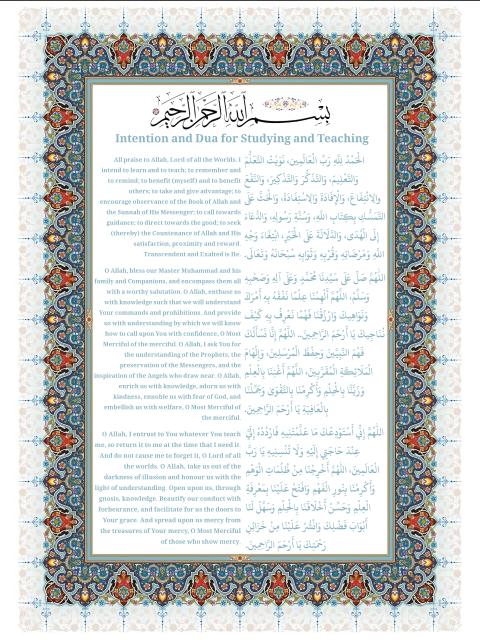 بسم الله الرحمن الرحيم
Intention and Dua for Studying and Teaching
All praise to Allah, Lord of all the Worlds. I
intend to learn and to teach; to remember and
to remind; to benefit (myself) and to benefit
others; to take and give advantage; to
encourage observance of the Book of Allah and
the Sunnah of His Messenger; to call towards
guidance; to direct towards the good; to seek
(thereby) the Countenance of Allah and His
satisfaction, proximity and reward.
Transcendent and Exalted is He.
O Allah, bless our Master Muhammad and his
family and Companions, and encompass them all
with a worthy salutation. O Allah, enthuse us
with knowledge such that we will understand
Your commands and prohibitions. And provide
us with understanding by which we will know
how to call upon You with confidence, O Most
Merciful of the merciful. O Allah, I ask You for
the understanding of the Prophets, the
preservation of the Messengers, and the
inspiration of the Angels who draw near. O Allah,
enrich us with knowledge, adorn us with
kindness, ennoble us with fear of God, and
embellish us with welfare, O Most Merciful of
the merciful.
O Allah, I entrust to You whatever You teach
me, so return it to me at the time that I need it.
And do not cause me to forget it, O Lord of all
the worlds. O Allah, take us out of the
darkness of illusion and honour us with the
light of understanding. Open upon us, through
gnosis, knowledge. Beautify our conduct with
forbearance, and facilitate for us the doors to
Your grace. And spread upon us mercy from
the treasures of Your mercy, O Most Merciful
of those who show mercy.
الْحَمْدُ لِلَّهِ رَبِّ الْعَالَمِينَ، نَوَيْتُ التَّعَلُّمَ
وَالتَّعْلِيمَ، وَالتَّذَكُّرَ وَالتَّذْكِيرَ، وَالنَّفْعَ
وَالِانْتِفَاعَ، وَالْإِفَادَةَ وَالِاسْتِفَادَةَ، وَالْحَثَّ عَلَى
التَّمَسُّكِ بِكِتَابِ اللَّهِ، وَسُنَّةِ رَسُولِهِ، وَالدُّعَاءَ
إِلَى الْهُدَى، وَالدَّلَالَةَ عَلَى الْخَيْرِ، ابْتِغَاءَ وَجْهِ
اللهِ وَمَرْضَاتِهِ وَقُرْبِهِ وَثَوَابِهِ سُبْحَانَهُ وَتَعَالَى.
اللَّهُمَّ صَلِّ عَلَى سَيِّدِنَا مُحَمَّدٍ وَعَلَى آلِهِ وَصَحْبِهِ
وَسَلِّمْ، اللَّهُمَّ أَلْهِمْنَا عِلْمًا نَفْقَهُ بِهِ أَمْرَكَ
وَنَوَاهِيكَ وَارْزُقْنَا فَهْمًا نَعْرِفُ بِهِ كَيْفَ
نُنَاجِيكَ يَا أَرْحَمَ الرَّاحِمِينَ.. اللَّهُمَّ إِنَّا نَسْأَلُكَ
فَهْمَ النَّبِيِّينَ وَحِفْظَ الْمُرْسَلِينَ، وَإِلْهَامَ
الْمَلَائِكَةِ الْمُقَرَّبِينَ، اللَّهُمَّ أَغْنِنَا بِالْعِلْمِ
وَزَيِّنَّا بِالْحِلْمِ وَأَكْرِمْنَا بِالتَّقْوَى وَجَمِّلْنَا
بِالْعَافِيَةِ يَا أَرْحَمَ الرَّاحِمِينَ.
اللَّهُمَّ إِنِّي أَسْتَوْدِعُكَ مَا عَلَّمْتَنِيهِ فَارْدُدْهُ إِلَيَّ
عِنْدَ حَاجَتِي إِلَيْهِ وَلَا تُنْسِنِيهِ يَا رَبَّ
الْعَالَمِينَ، اللَّهُمَّ أَخْرِجْنَا مِنْ ظُلُمَاتِ الْوَهْمِ
وَأَكْرِمْنَا بِنُورِ الْفَهْمِ وَافْتَحْ عَلَيْنَا بِمَعْرِفَةِ
الْعِلْمِ وَحَسِّنْ أَخْلَاقَنَا بِالْحِلْمِ وَسَهِّلْ لَنَا
أَبْوَابَ فَضْلِكَ وَانْشُرْ عَلَيْنَا مِنْ خَزَائِنِ
رَحْمَتِكَ يَا أَرْحَمَ الرَّاحِمِينَ.